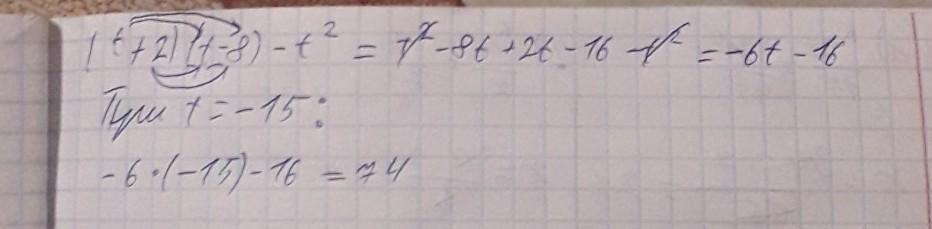 (t+2)(t-8)-t² = t²-8t+2t-16-t² = -6t-16
При t=-15:
-6·(-15)-16 = 74